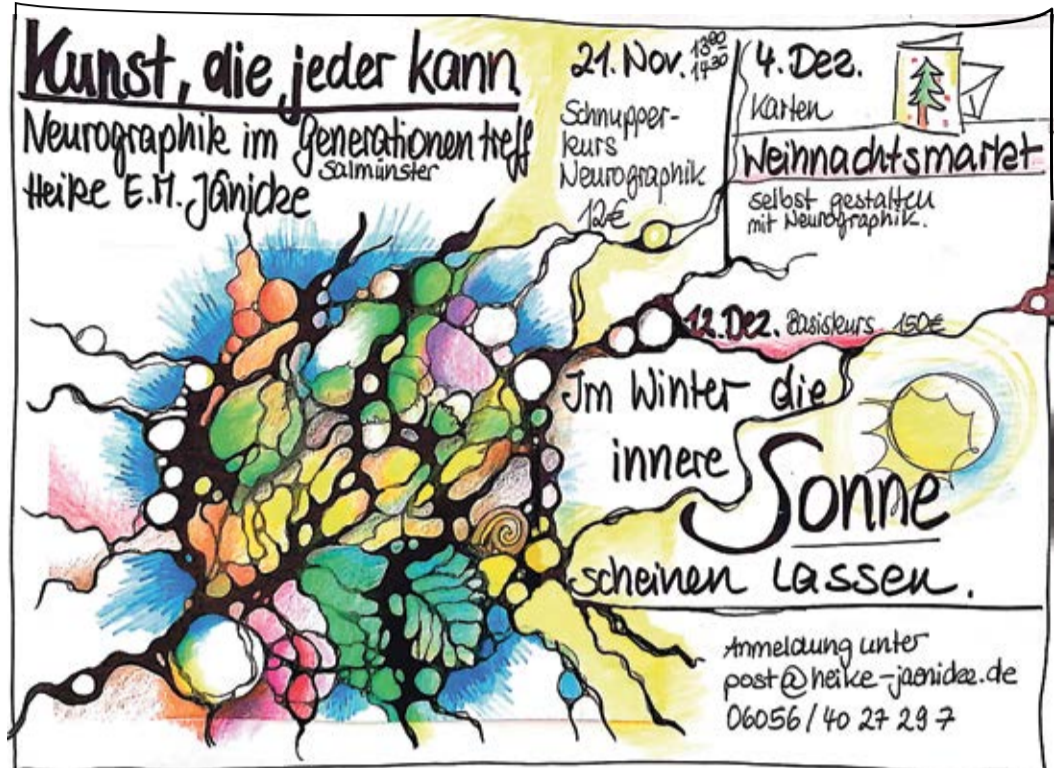 Kunst, die jeder kann
Neurographik im Generationentreff
Salmünster
Heike E.M. Jänicke
21. Nov. 13⁰⁰
14³⁰
Schnupper-
kurs
Neurographik
12€
4. Dez.
Karten
Weihnachtsmarkt
selbst gestalten
mit Neurographik.
12. Dez. Basiskurs 150€
Im Winter die
innere
Sonne
scheinen lassen.
Anmeldung unter
post@heike-jaenicke.de
06056/40 27 29 7